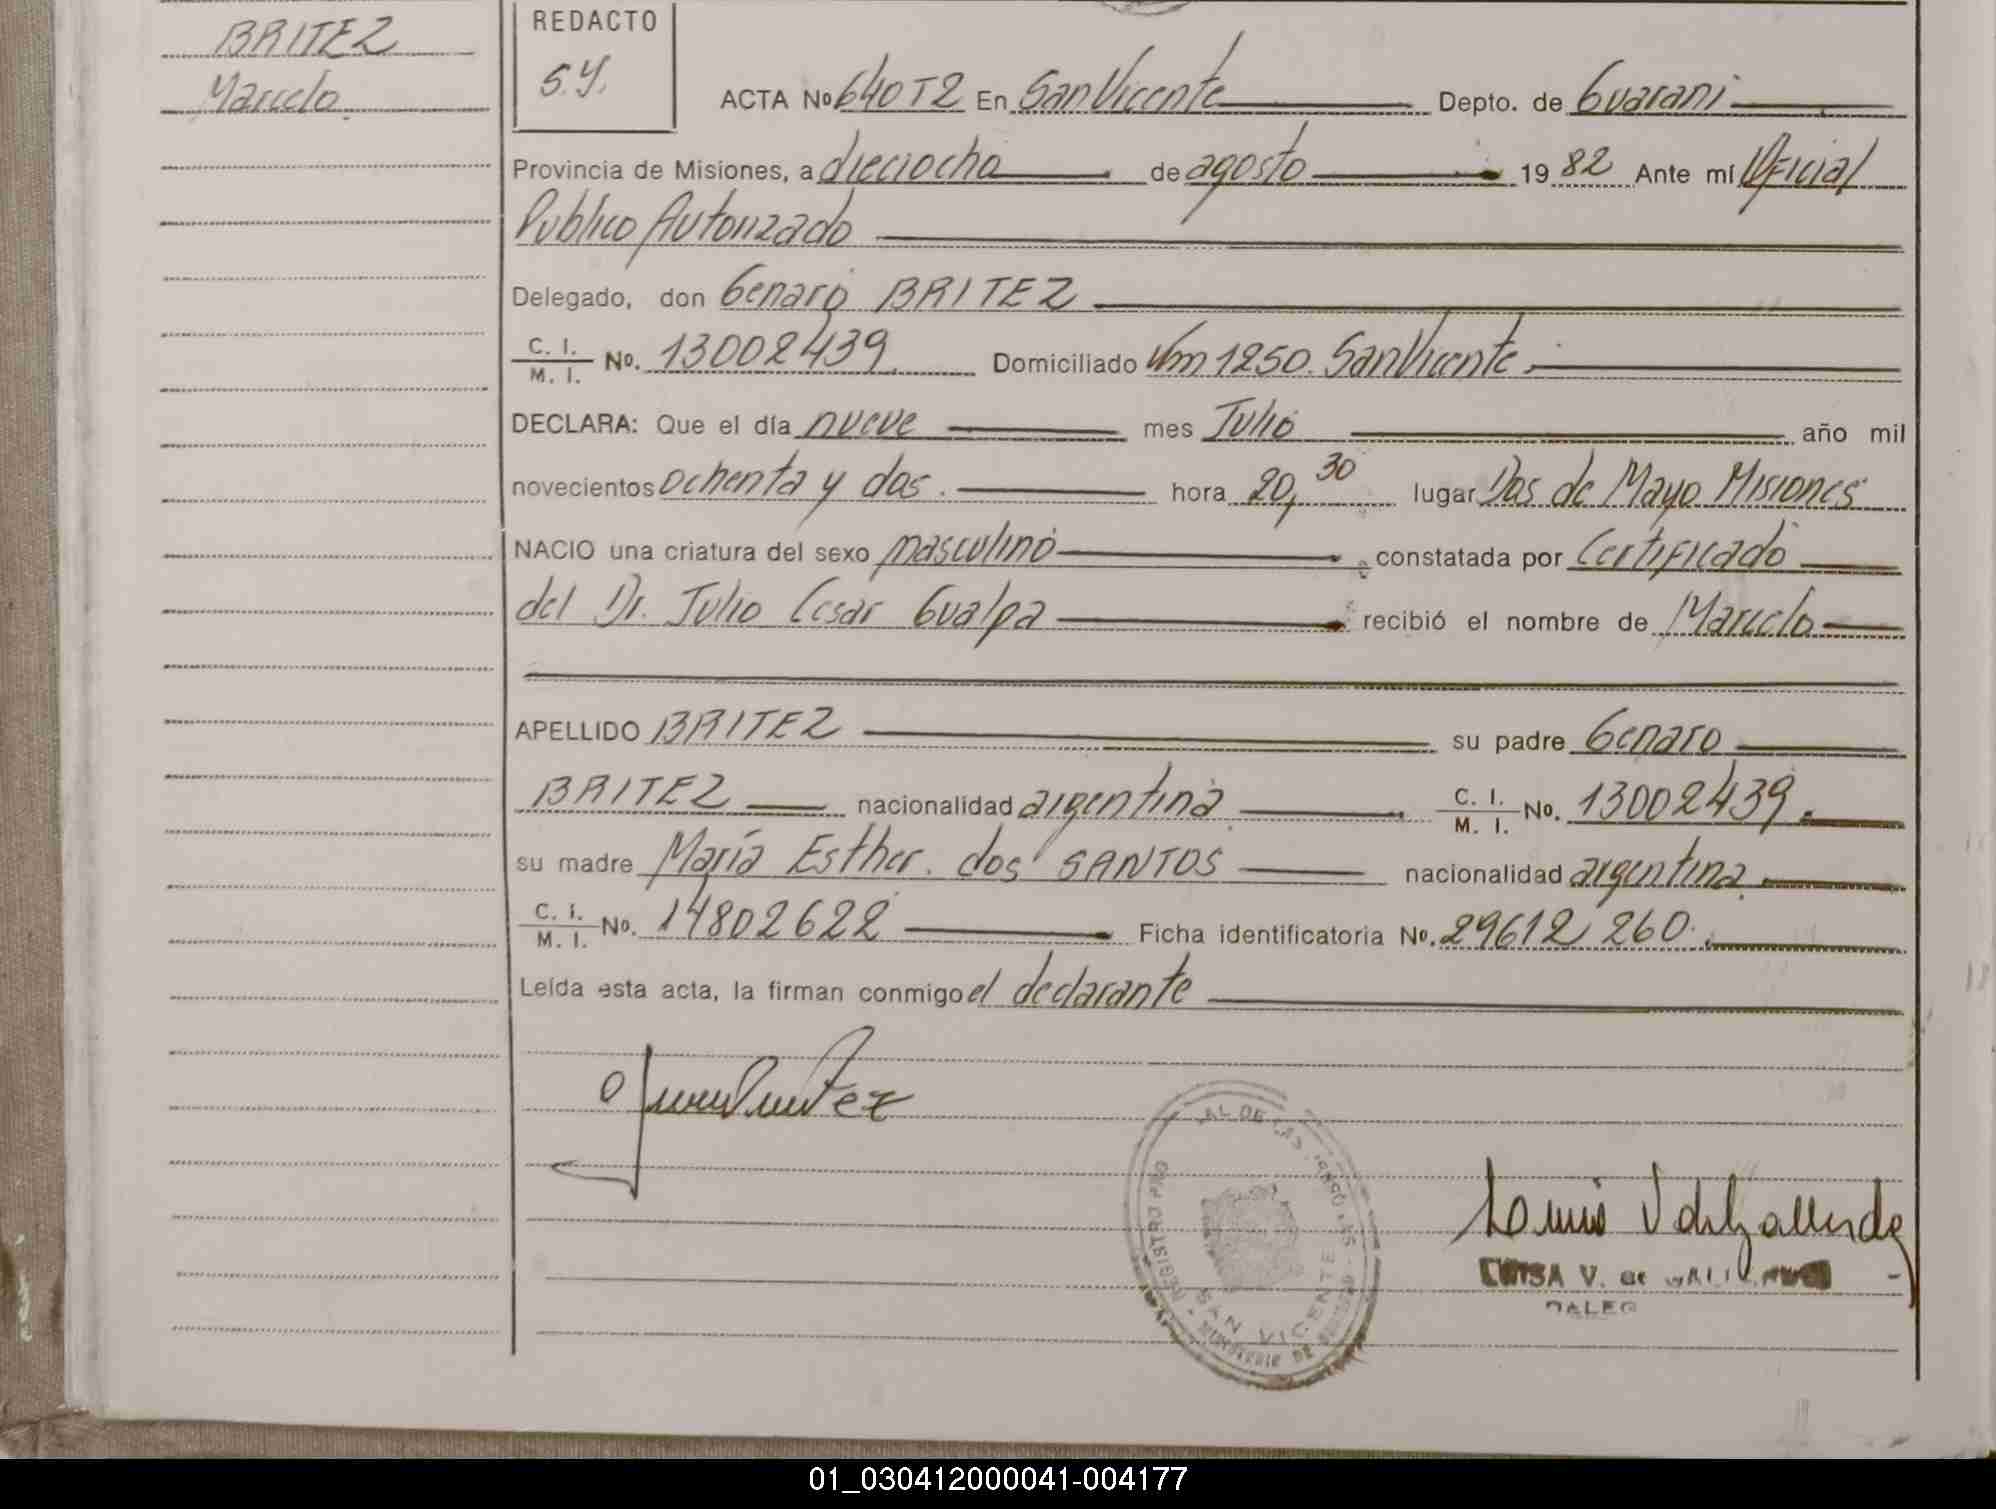 BRITEZ
Marcelo
REDACTO
S.Y.
ACTA No 640 T2 En San Vicente Depto. de Guarani
Provincia de Misiones, a dieciocho de agosto 1982 Ante mí Oficial
Publico Autorizado
Delegado, don Genaro BRITEZ
C. I. / M. I. No. 13002439 Domiciliado Km 1250. San Vicente
DECLARA: Que el día nueve mes Julio año mil
novecientos ochenta y dos. hora 20,30 lugar Dos de Mayo Misiones
NACIO una criatura del sexo masculino constatada por Certificado
del Dr. Julio Cesar Gualpa recibió el nombre de Marcelo
APELLIDO BRITEZ su padre Genaro
BRITEZ nacionalidad argentina C. I. / M. I. No. 13002439.
su madre María Esther dos SANTOS nacionalidad argentina
C. I. / M. I. No. 14802622 Ficha identificatoria No. 29612 260.
Leída esta acta, la firman conmigo el declarante
REGISTRO PRO AL DE LAS
SAN VICENTE
LUISA V. de
01_030412000041-004177